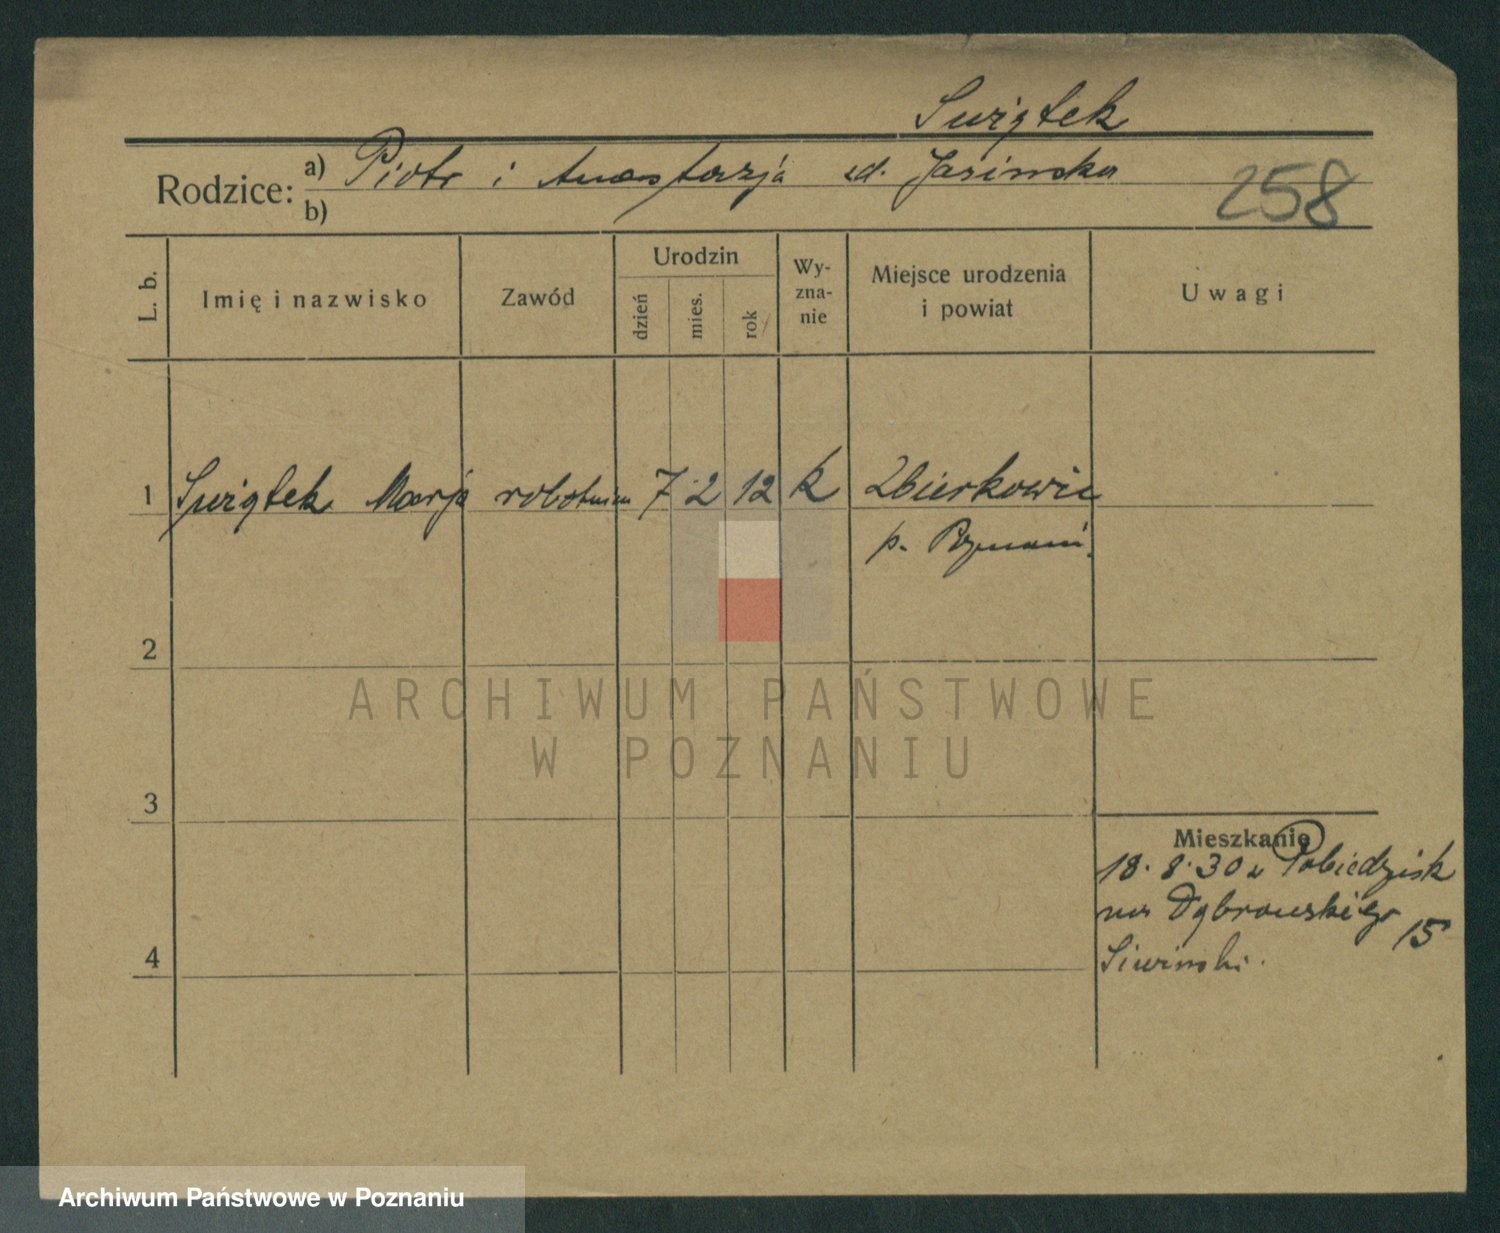 Swiątek
Rodzice: a) Piotr i Anastazja zd. Jasinska
b)
258
L. b.
Imię i nazwisko
Zawód
Urodzin
dzień
mies.
rok
Wy-
zna-
nie
Miejsce urodzenia
i powiat
Uwagi
1 Swiątek Marja robotnica 7 2 12 k Zbierkowic
p. Poznań
2
3
4
Mieszkanie
18.8.30 z Pobiedzisk
na Dąbrowskiego 15
Siwinski.
ARCHIWUM PAŃSTWOWE
W POZNANIU
Archiwum Państwowe w Poznaniu